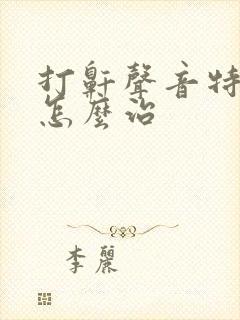 打鼾聲音特
怎麼治
李麗